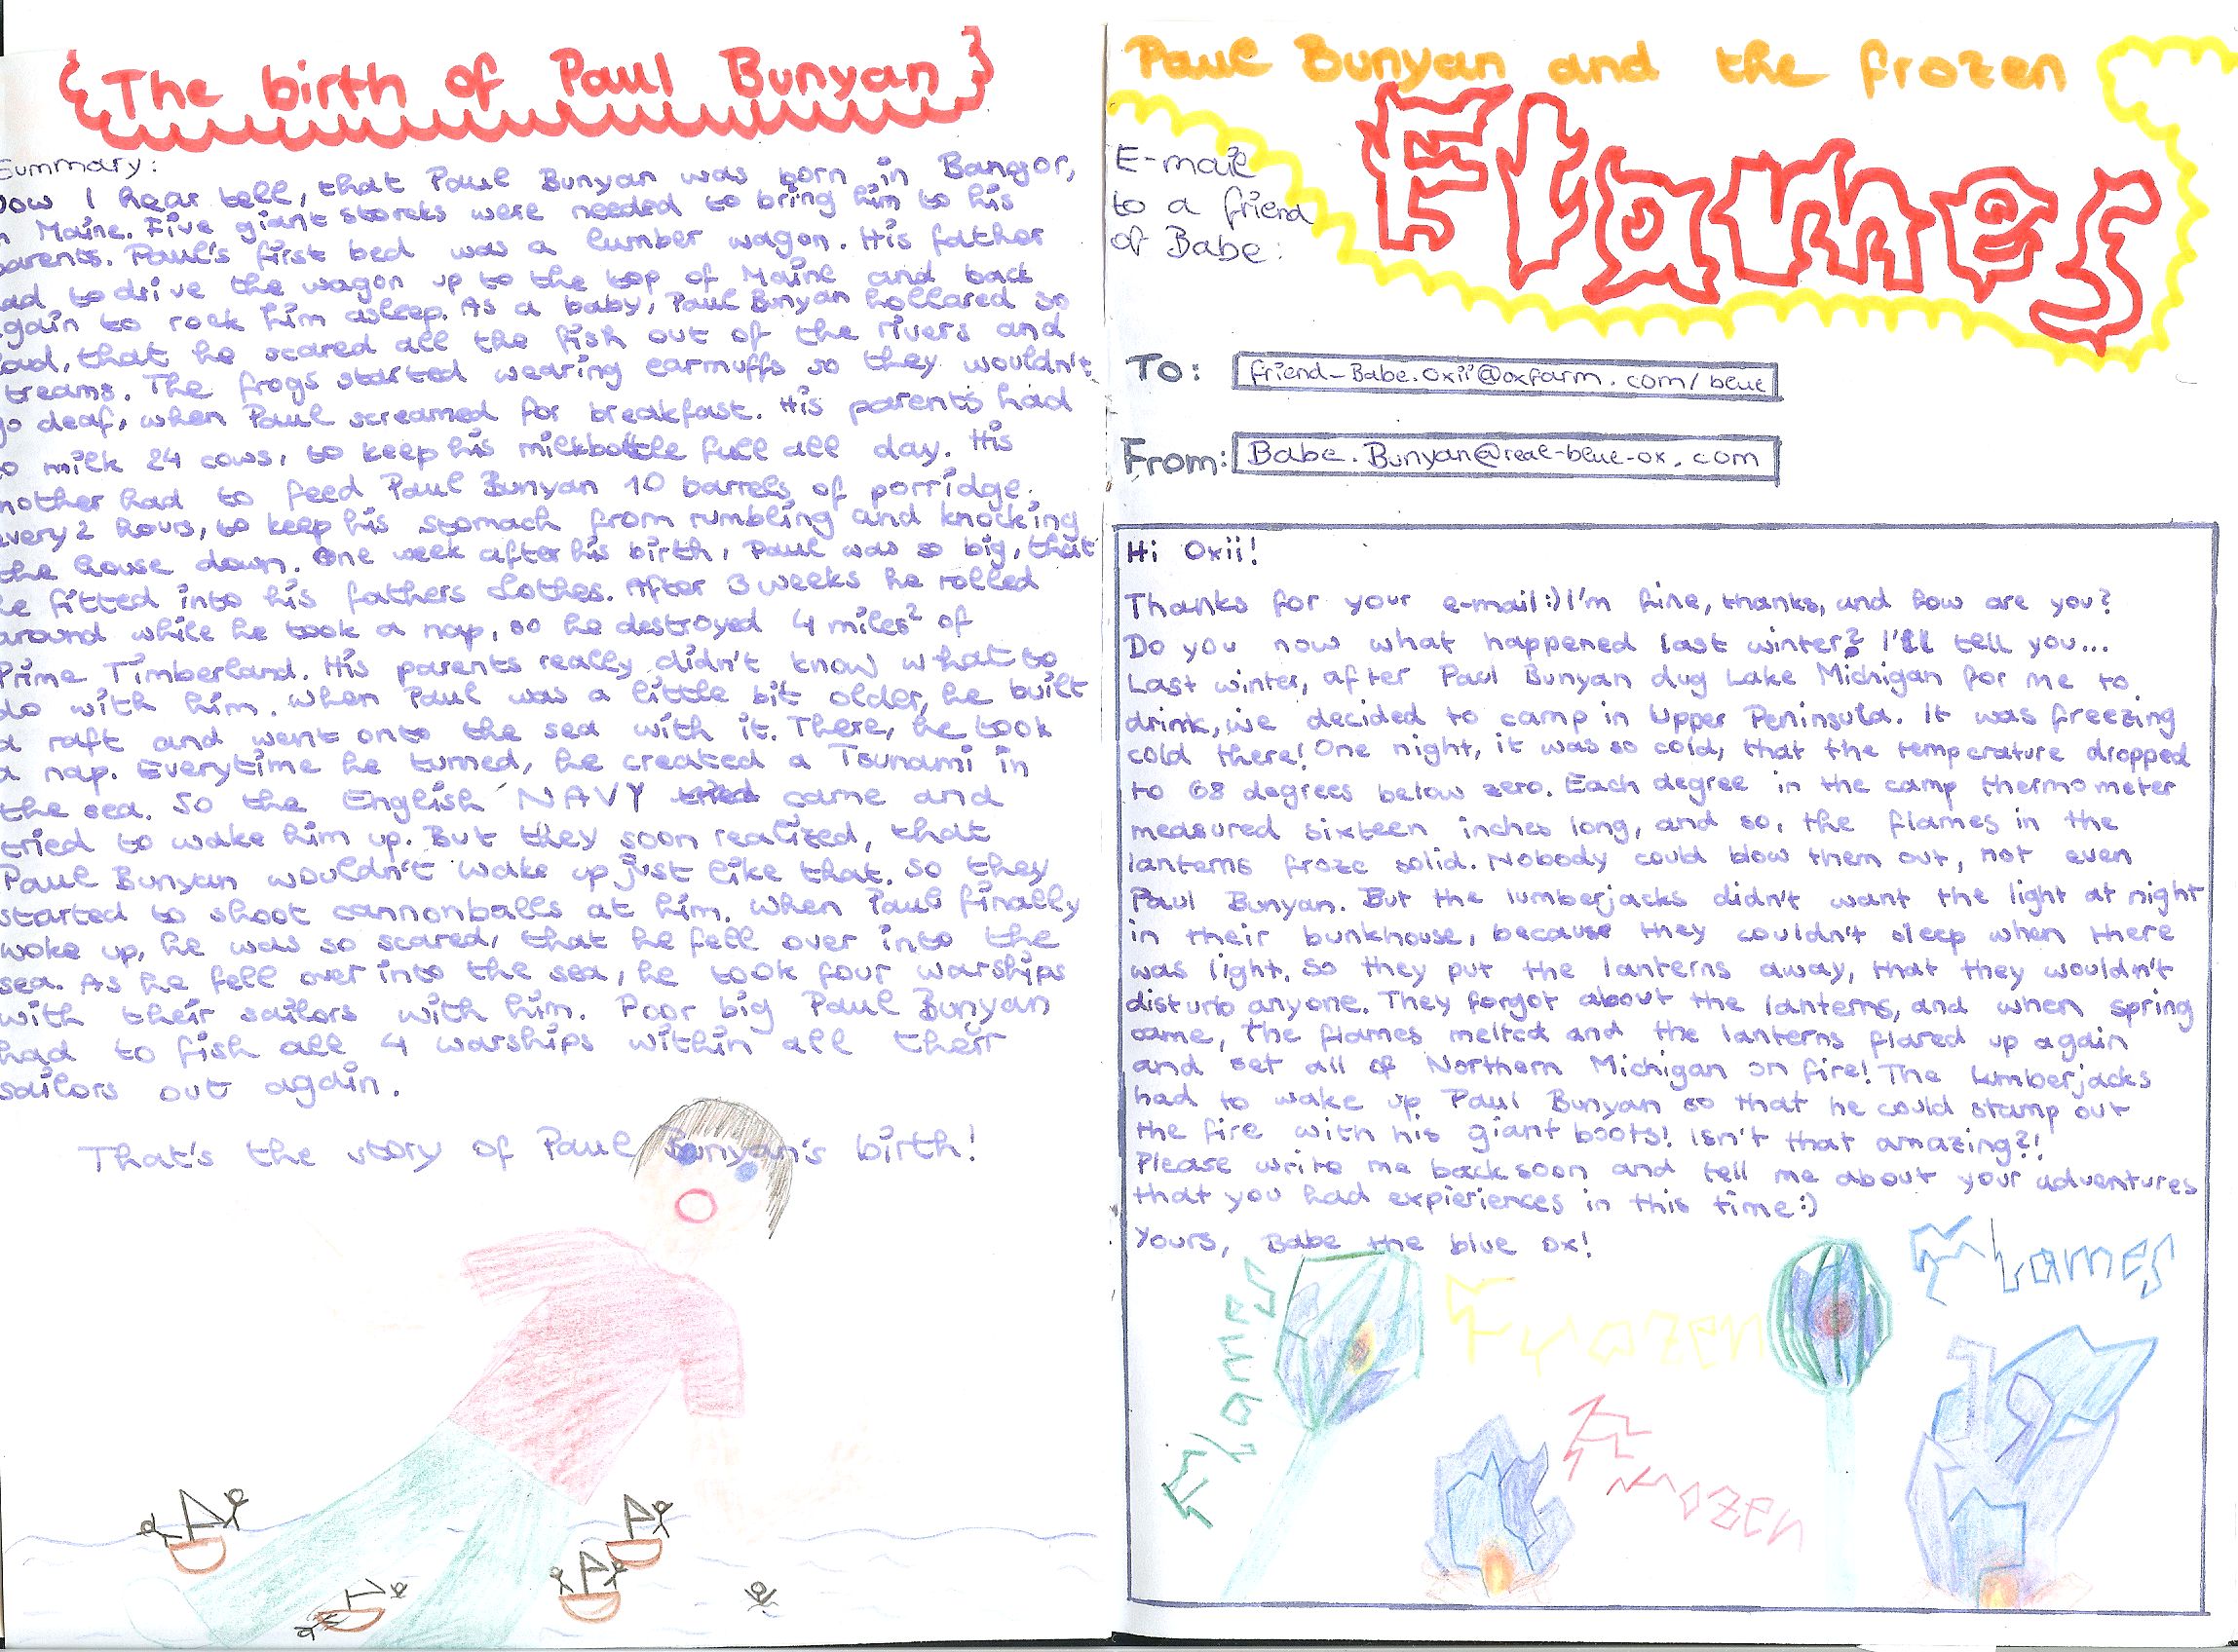 The birth of Paul Bunyan
Summary:
Now I hear tell, that Paul Bunyan was born in Bangor,
in Maine. Five giant storcks were needed to bring him to his
parents. Paul's first bed was a lumber wagon. His father
had to drive the wagon up to the top of Maine and back
again to rock him asleep. As a baby, Paul Bunyan hollared so
, that he scared all the fish out of the rivers and
streams. The frogs started wearing earmuffs so they wouldn't
go deaf, when Paul screamed for breakfast. His parents had
to milk 24 cows, to keep his milkbottle full all day. His
mother had to feed Paul Bunyan 10 barrels of porridge
every 2 hours, to keep his stomach from rumbling and knocking
the house down. One week after his birth, Paul was so big, that
he fitted into his fathers clothes. After 3 weeks he rolled
around while he took a nap, so he destroyed 4 miles² of
Prime Timberland. His parents really didn't know what to
do with him. When Paul was a little bit older, he built
a raft and went onto the sea with it. There, he took
a nap. Everytime he turned, he created a Tsunami in
the sea. So the English NAVY came and
tried to wake him up. But they soon realized, that
Paul Bunyan wouldn't wake up just like that. So they
started to shoot cannonballs at him. When Paul finally
woke up, he was so scared, that he fell over into the
sea. As he fell over into the sea, he took four warships
with their sailors with him. Poor big Paul Bunyan
had to fish all 4 warships within all their
sailors out again.
That's the story of Paul Bunyan's birth!
Paul Bunyan and the frozen
Flames
E-mail
to a friend
of Babe:
To: friend-Babe.oxii@oxfarm.com/blue
From: Babe.Bunyan@real-blue-ox.com
Hi Oxii!
Thanks for your e-mail:) I'm fine, thanks, and how are you?
Do you now what happened last winter? I'll tell you...
Last winter, after Paul Bunyan dug Lake Michigan for me to
drink, we decided to camp in Upper Peninsula. It was freezing
cold there! One night, it was so cold, that the temperature dropped
to 68 degrees below zero. Each degree in the camp thermometer
measured sixteen inches long, and so, the flames in the
lanterns froze solid. Nobody could blow them out, not even
Paul Bunyan. But the lumberjacks didn't want the light at night
in their bunkhouse, because they couldn't sleep when there
was light. So they put the lanterns away, that they wouldn't
disturb anyone. They forgot about the lanterns, and when spring
came, the flames melted and the lanterns flared up again
and set all of Northern Michigan on fire! The lumberjacks
had to wake up Paul Bunyan so that he could stamp out
the fire with his giant boots! Isn't that amazing?!
Please write me back soon and tell me about your adventures
that you had expieriences in this time:)
Yours, Babe the blue ox!
Flames
Frozen
Flames
Frozen